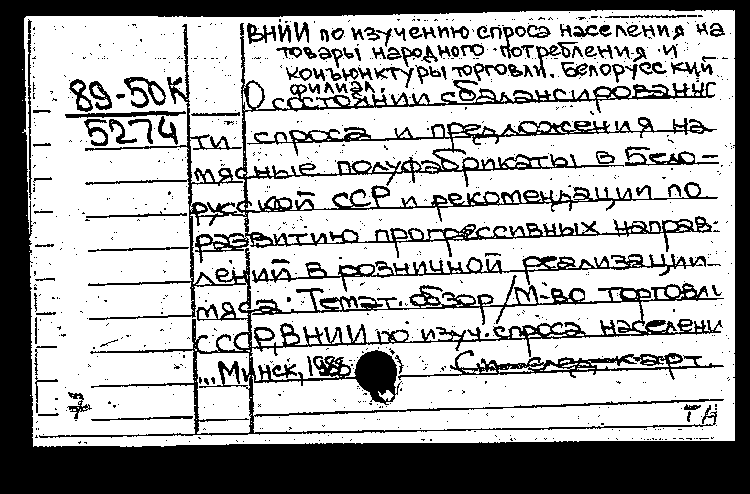 ВНИИ по изучению спроса населения на
товары народного потребления и
конъюнктуры торговли. Белорусский
филиал.
89-50К
5274
О состоянии сбалансированнос
ти спроса и предложения на
мясные полуфабрикаты в Бело-
русской ССР и рекомендации по
развитию прогрессивных направ-
лений в розничной реализации
мяса: Темат. обзор / М-во торговли
СССР, ВНИИ по изуч. спроса населени
... Минск, 1988
См. след. карт.
ТА